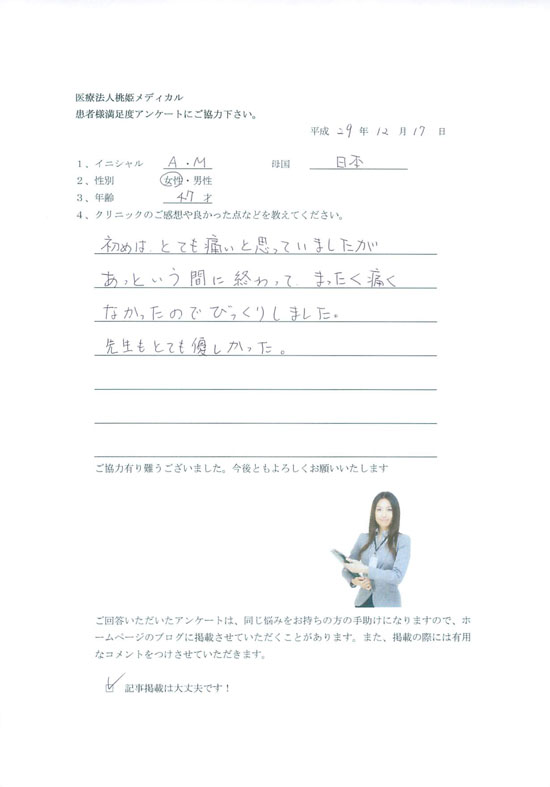 医療法人桃姫メディカル
患者様満足度アンケートにご協力下さい。
平成 29 年 12 月 17 日
1、イニシャル A・M 母国 日本
2、性別 女性・男性
3、年齢 47 才
4、クリニックのご感想や良かった点などを教えてください。
初めは、とても痛いと思っていましたが
あっという間に終わって、まったく痛く
なかったのでびっくりしました。
先生もとても優しかった。
ご協力有り難うございました。今後ともよろしくお願いいたします
ご回答いただいたアンケートは、同じ悩みをお持ちの方の手助けになりますので、ホ
ームページのブログに掲載させていただくことがあります。また、掲載の際には有用
なコメントをつけさせていただきます。
☑ 記事掲載は大丈夫です！